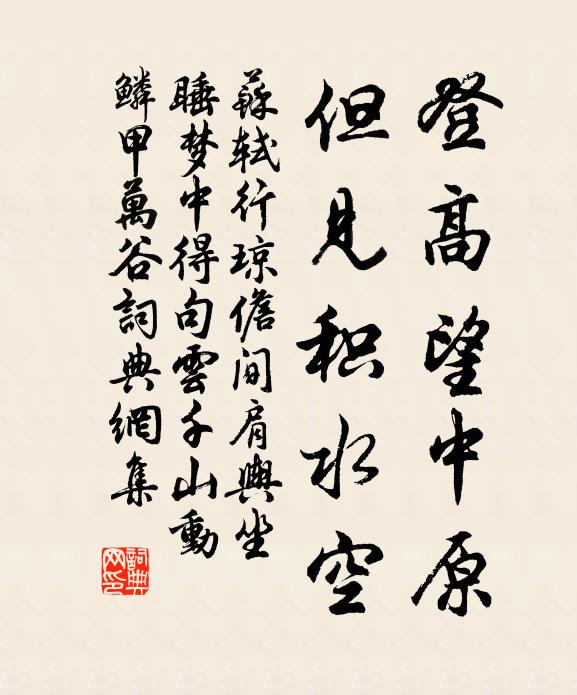 登高望中原
但見积水空
蘇軾行琼儋间肩輿坐
睡梦中得句雲千山動
鱗甲萬谷詞典網集
詞典网印